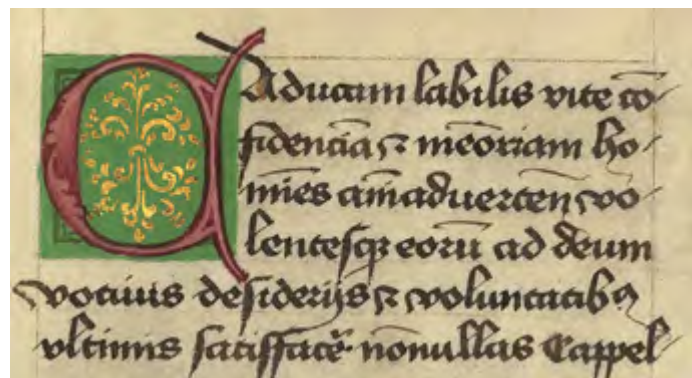 Caducam labilis vite cō-
fidenciā ⁊ mēoriam ho-
mīes aīaduertēn vo-
lentesqꝫ eorū ad deum
votiuis desiderijs ⁊ voluntatibꝰ
vltimis satisfacē nōnullas Cappel-